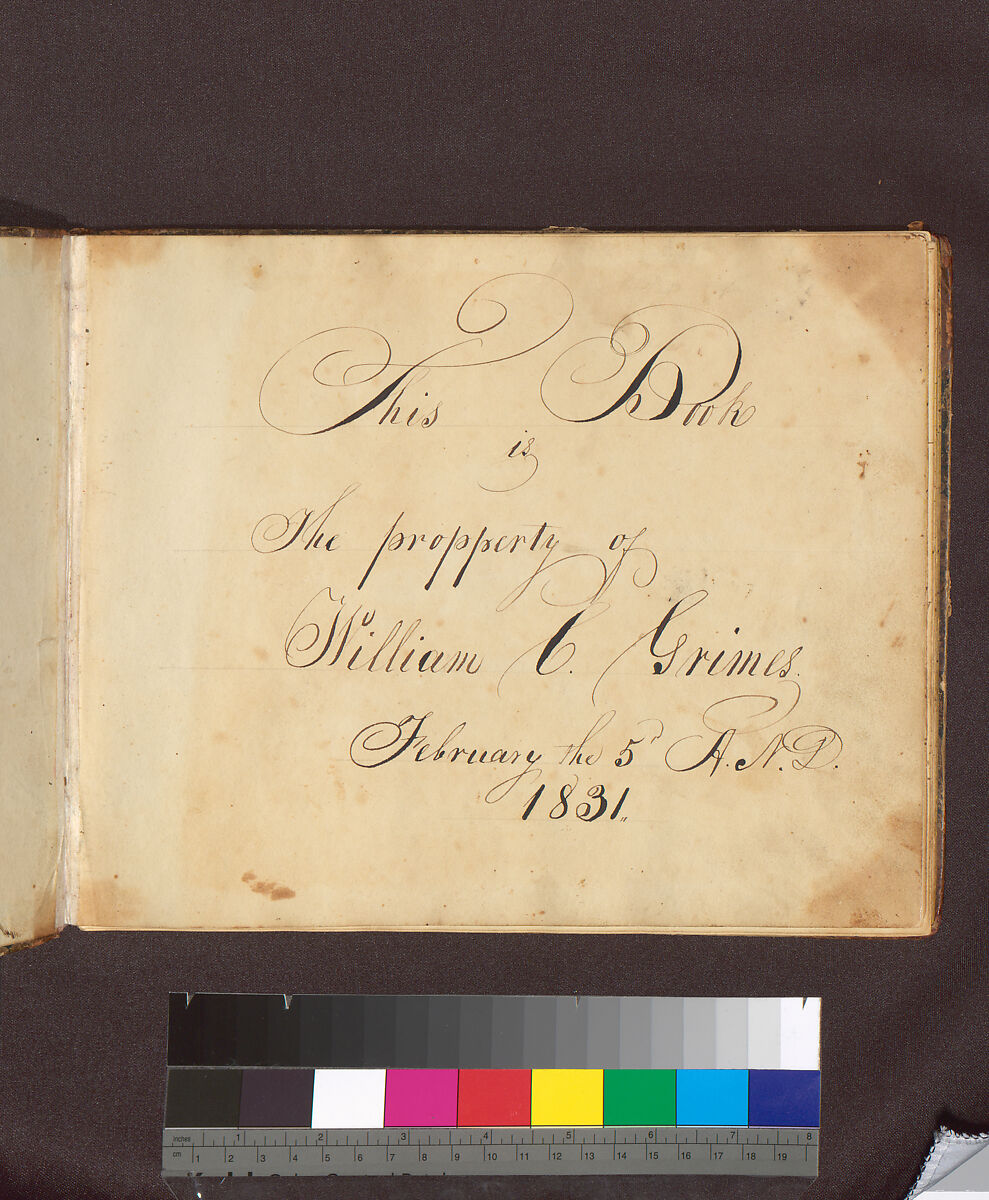 This Book
is
The propperty of
William C. Grimes.
February the 5d A.N.D.
1831„
inches 1 2 3 4 5 6 7 8
cm 1 2 3 4 5 6 7 8 9 10 11 12 13 14 15 16 17 18 19